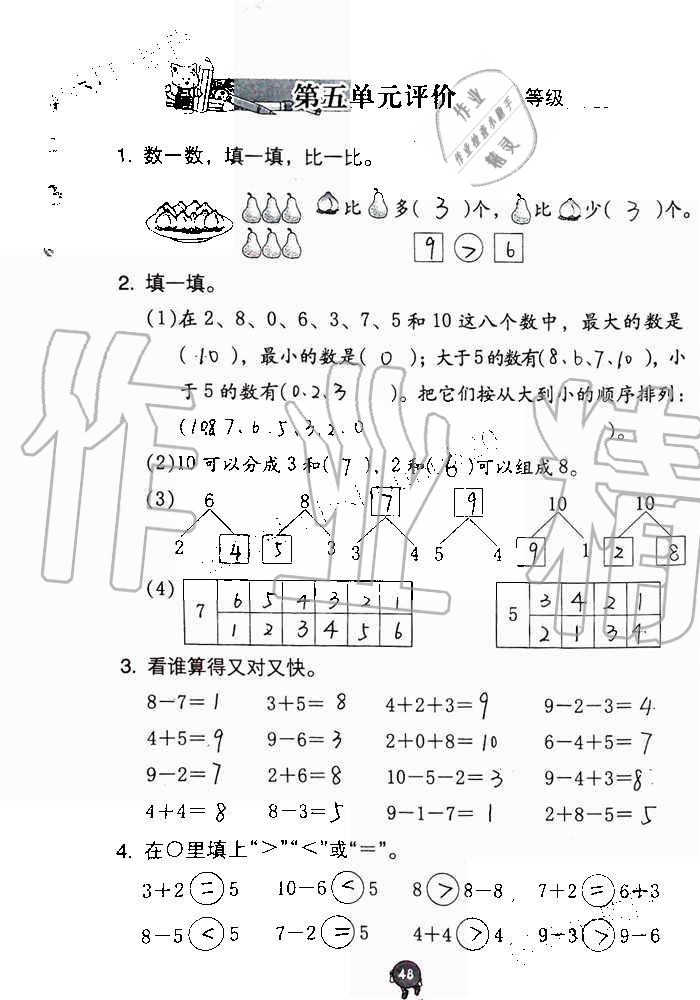 第五单元评价 等级
作业
作业检查小助手
精灵
1. 数一数，填一填，比一比。
比 多( 3 )个， 比 少( 3 )个。
9 > 6
2. 填一填。
(1)在 2、8、0、6、3、7、5 和 10 这八个数中，最大的数是
(10)，最小的数是( 0 )；大于5的数有(8、6、7、10)，小
于 5 的数有(0、2、3 )。把它们按从大到小的顺序排列：
(10 8 7、6、5、3、2、0 )。
(2)10 可以分成 3 和( 7 )，2 和( 6 )可以组成 8。
(3) 6 8 7 9 10 10
2 4 5 3 3 4 5 4 9 1 2 8
(4) 7 6 5 4 3 2 1 5 3 4 2 1
1 2 3 4 5 6 2 1 3 4
3. 看谁算得又对又快。
8－7＝1 3＋5＝8 4＋2＋3＝9 9－2－3＝4
4＋5＝9 9－6＝3 2＋0＋8＝10 6－4＋5＝7
9－2＝7 2＋6＝8 10－5－2＝3 9－4＋3＝8
4＋4＝8 8－3＝5 9－1－7＝1 2＋8－5＝5
4. 在○里填上“＞”“＜”或“＝”。
3＋2＝5 10－6＜5 8＞8－8 7＋2＝6＋3
8－5＜5 7－2＝5 4＋4＞4 9－3＞9－6
48
作业精